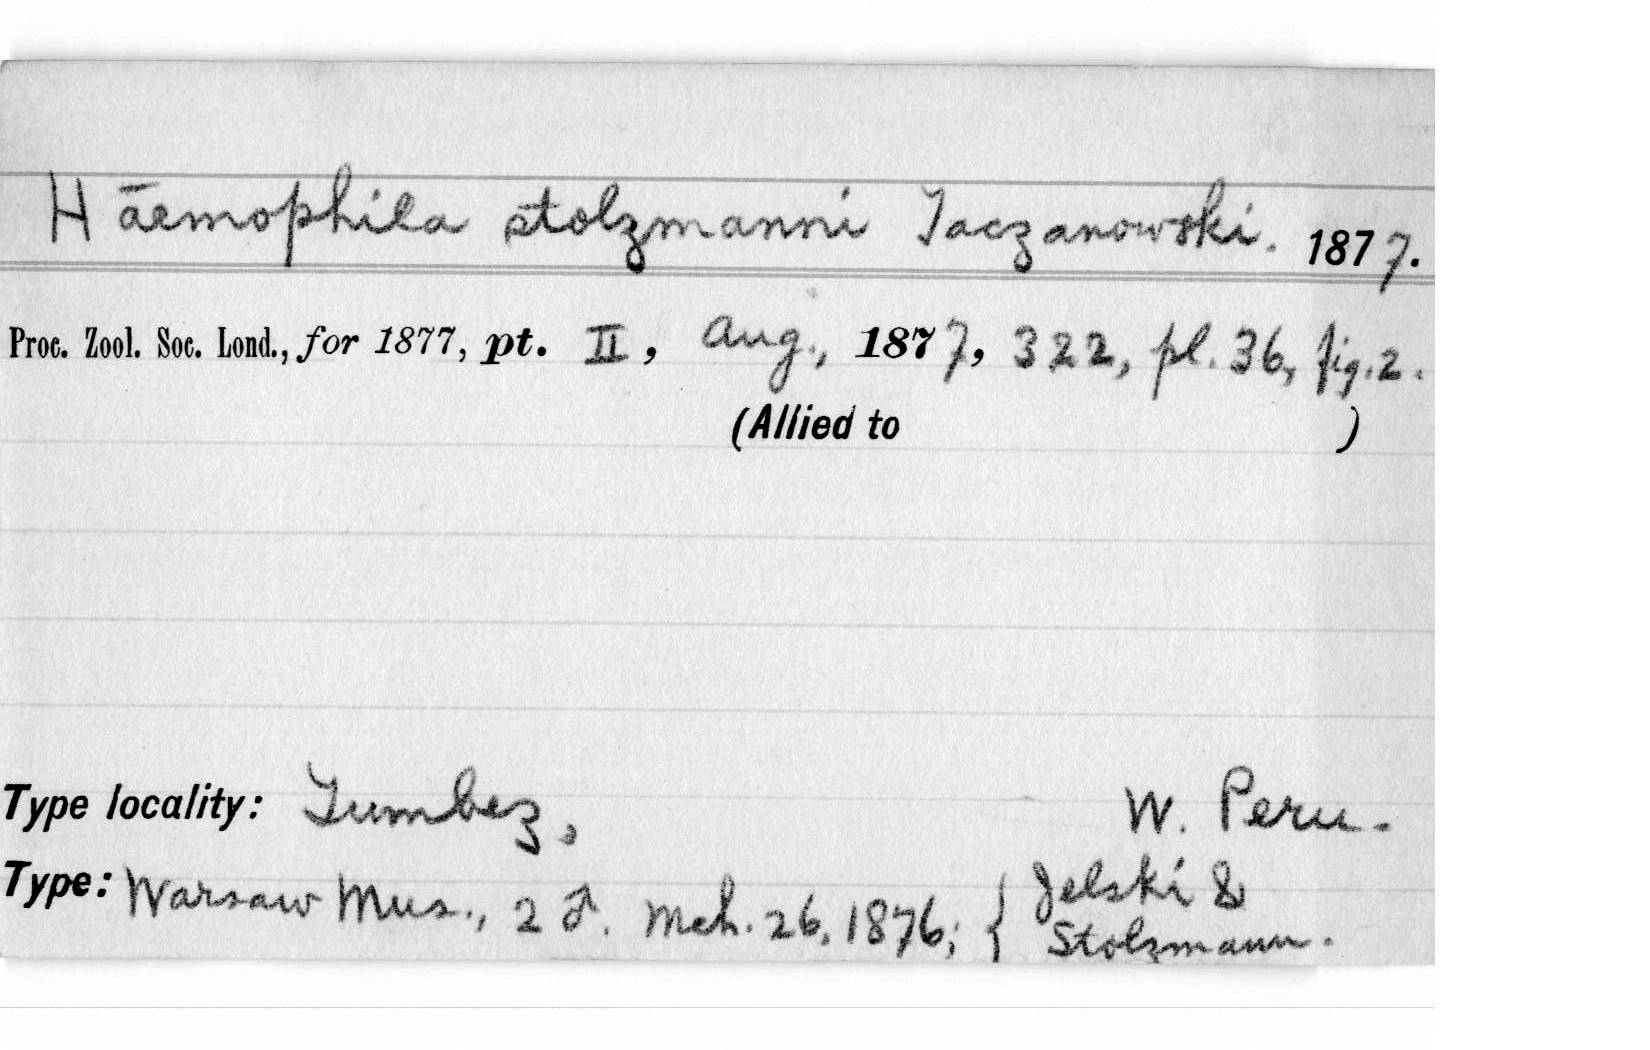 Haemophila stolzmanni Taczanowski. 1877.
Proc. Zool. Soc. Lond., for 1877, pt. II, Aug., 1877, 322, pl. 36, fig. 2.
(Allied to )
Type locality: Tumbez, W. Peru.
Type: Warsaw Mus., 2 ♂. Mch. 26, 1876; { Jelski &
Stolzmann.